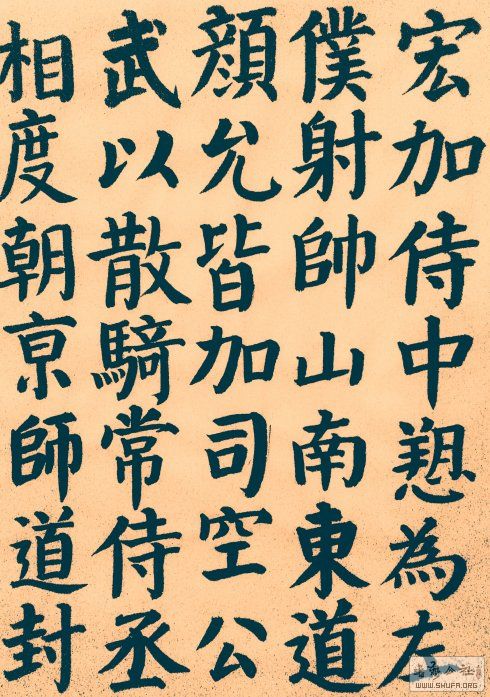 宏加侍中愬為左
僕射帥山南東道
顔允皆加司空公
武以散騎常侍丞
相度朝亰師道封
WWW.SHUFA.ORG